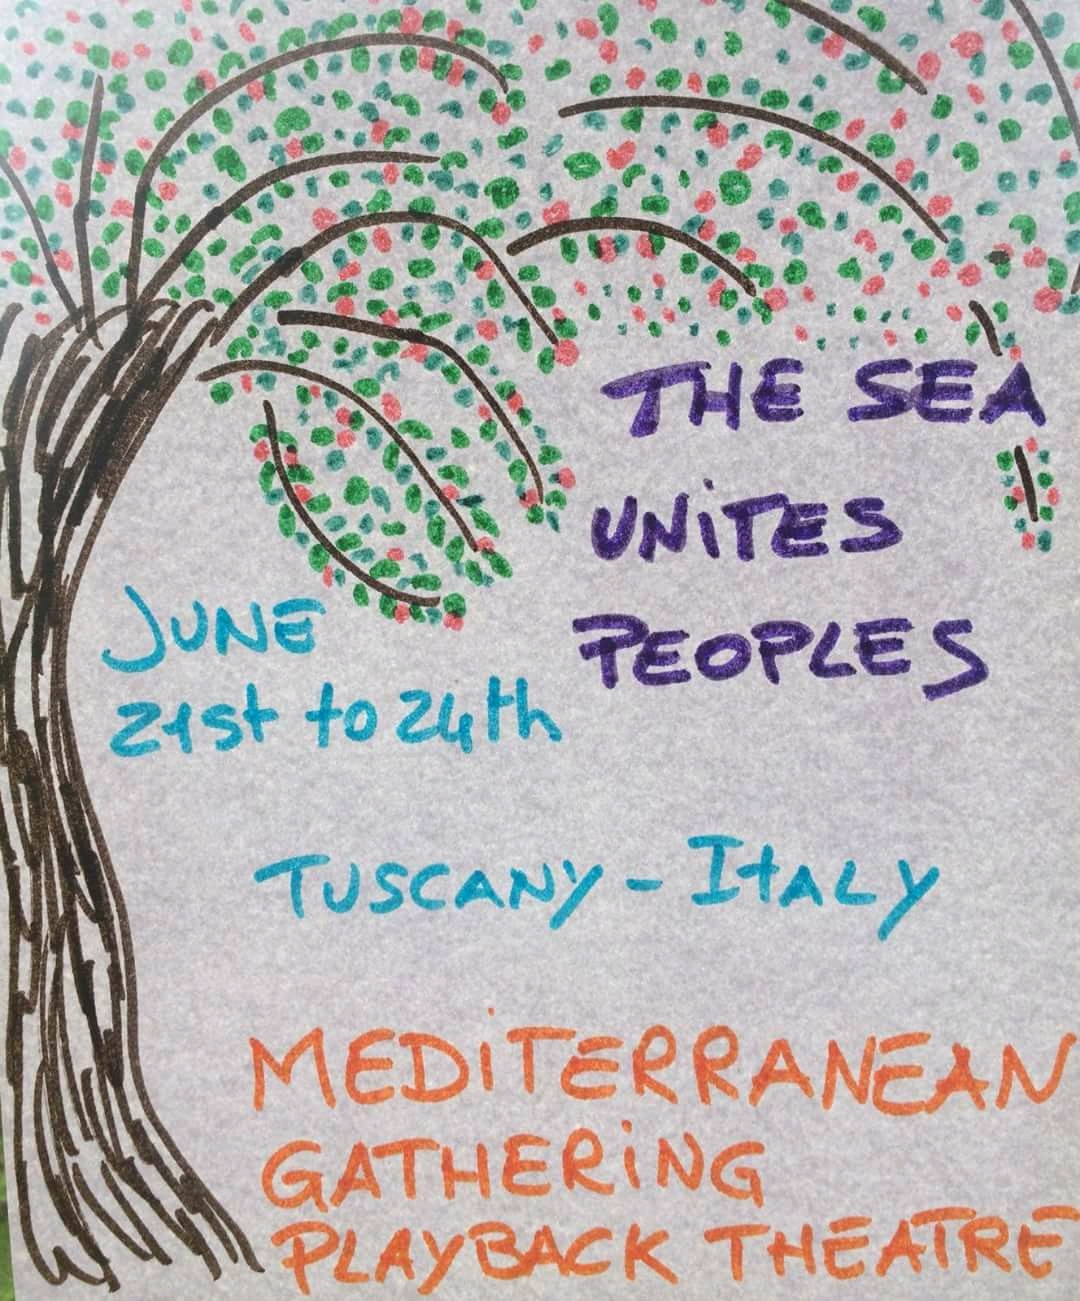 THE SEA
UNiTES
PEOPLES
JUNE
21st to 24th
TUSCANY - ItALY
MEDiTERRANEAN
GATHERiNG
PLAYBACK THEATRE